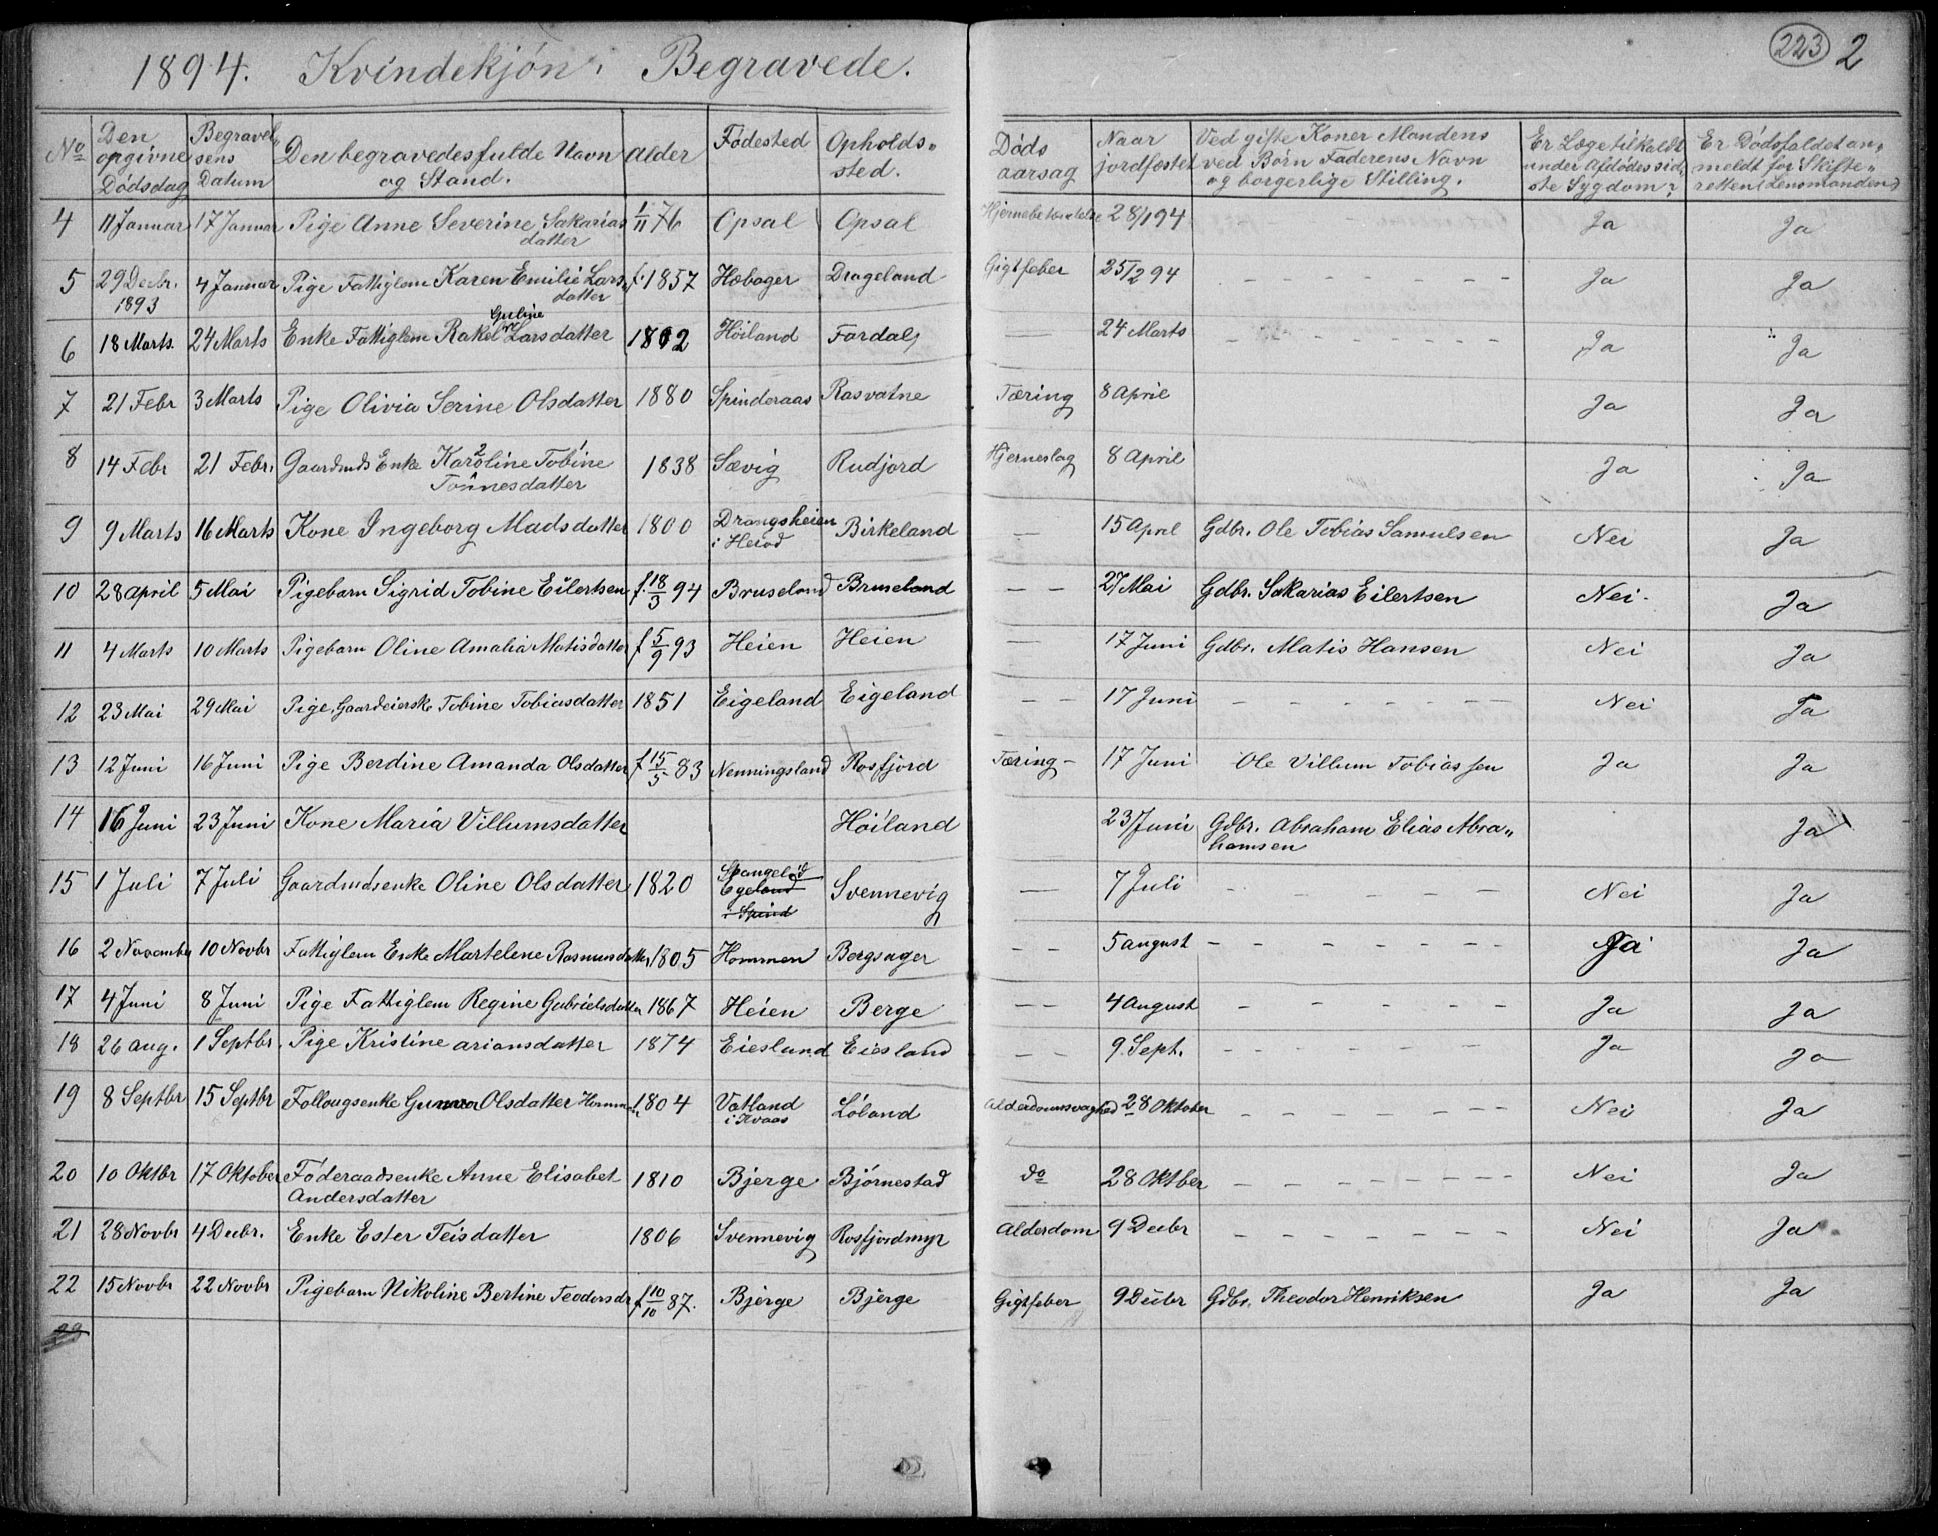 1894. Kvindekjón. Begravede.
223 2
No | Den opgivne Dódsdag | Begravel„sens Datum | Den begravedes fulde Navn og Stand. | Alder | Fódested | Opholds„sted. | Dóds aarsag | Naar jordfæstet | Ved gifte Koner Mandens ved Børn Faderens Navn og borgerlige Stilling. | Er Læge tilkaldt under Afdødes sid„ste Sygdom? | Er Dódsfaldet an„meldt for Skifte„retten (Lensmanden)
4 | 11 Januar | 17 Januar | Pige Anne Severine Sakarias datter | 1/11 76 | Opsal | Opsal | Hjernebetændelse | 28/1 94 | - | Ja | Ja
5 | 29 Decbr. 1893 | 4 Januar | Pige Fattiglem Karen Emilie Lars„datter | f. 1857 | Hæbager | Drageland | Gigtfeber | 25/2 94 | - - - - - | Ja | Ja
6 | 18 Marts | 24 Marts | Enke Fattiglem Rakel Guline Larsdatter | 1802 | Höiland | Fardal | — | 24 Marts | - - - - - - - | Ja | Ja
7 | 21 Febr | 3 Marts | Pige Olivia Serine Olsdatter | 1880 | Spinderaas | Rasvatne | Tæring | 8 April | | Ja | Ja
8 | 14 Febr | 21 Febr. | Gaardmds Enke Karoline Tobine Tönnesdatter | 1838 | Sævig | Rudjord | Hjerneslag | 8 April | | Ja | Ja
9 | 9 Marts | 16 Marts | Kone Ingeborg Madsdatter | 1800 | Drangsheien i Herod | Birkeland | — | 15 April | Gdbr. Ole Tobias Samuelsen | Nei | Ja
10 | 28 April | 5 Mai | Pigebarn Sigrid Tobine Eilertsen | f. 18/3 94 | Bruseland | Bruseland | - - | 27 Mai | Gdbr. Sakarias Eilertsen | Nei. | Ja
11 | 4 Marts | 10 Marts | Pigebarn Oline Amalia Matisdatter | f 5/9 93 | Heien | Heien | — | 17 Juni | Gdbr. Matis Hansen | Nei | Ja
12 | 23 Mai | 29 Mai | Pige, Gaardeierske Tobine Tobiasdatter | 1851 | Eigeland | Eigeland | - - | 17 Juni | - - - - - - | Nei | Ja
13 | 12 Juni | 16 Juni | Pige Berdine Amanda Olsdatter | f 15/5 83 | Nenningsland | Rosfjord | Tæring - | 17 Juni | Ole Villum Tobiassen | Ja | Ja
14 | 16 Juni | 23 Juni | Kone Maria Villumsdatter | | | Höiland | — | 23 Juni | Gdbr. Abraham Elias Abra„hamsen | | Ja
15 | 1 Juli | 7 Juli | Gaardmdsenke Oline Olsdatter | 1820 | Spangelid Egeland i Spind | Svennevig | — | 7 Juli | - - - - | Nei | Ja
16 | 2 November | 10 Novbr | Fattiglem Enke Martelene Rasmusdatter | 1805 | Hommen | Bergsager | - - | 5 august | - - - - - - - | Ja | Ja
17 | 4 Juni | 8 Juni | Pige Fattiglem Regine Gabrielsdatter | 1867 | Heien | Berge | - - | 4 august | - - - - - - | Ja | Ja
18 | 26 aug. | 1 Septbr. | Pige Kristine ariansdatter | 1874 | Eiesland | Eiesland | - - | 9. Sept. | - - - - - - - | Ja | Ja
19 | 8 Septbr | 15 Septbr | Follougsenke Gunvor Olsdatter Hommen | 1804 | Vatland i Kvaas | Lóland | Alderdomssvaghed | 28 Oktober | - - - - - - | Nei | Ja
20 | 10 Oktbr | 17 Oktober | Föderaadsenke Anne Elisabet Andersdatter | 1810 | Bjerge | Björnestad | do | 28 Oktber | - - - - - - - | Nei | Ja
21 | 28 Novbr | 4 Decbr. | Enke Ester Teisdatter | 1806 | Svennevig | Rosfjordmyr | Alderdom | 9 Decbr | - - - - - - - | Nei | Ja
22 | 15 Novbr | 22 Novbr | Pigebarn Nikoline Bertine Teodorsdr | f 10/10 87. | Bjerge | Bjerge | Gigtfeber | 9 Decbr | Gdbr. Theodor Henriksen | Ja | Ja
23